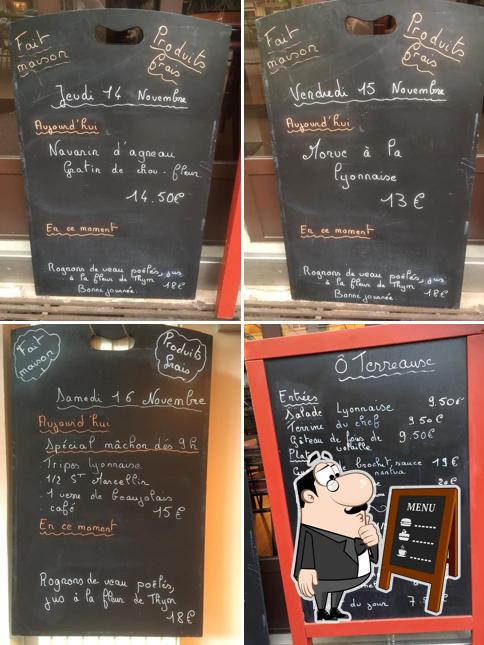 Fait
maison
Produits
frais
Jeudi 14 Novembre
Aujourd'hui
Navarin d'agneau
Gratin de chou-fleur
14.50€
En ce moment
Rognons de veau poêlés, jus
à la fleur de Thym 18€
Bonne journée.
Fait
maison
Produits
frais
Vendredi 15 Novembre
Aujourd'hui
Morue à la
lyonnaise
13€
En ce moment
Rognons de veau poêlés, jus
à la fleur de Thym 18€
Bonne journée.
Fait
maison
Produits
frais
Samedi 16 Novembre
Aujourd'hui
Spécial mâchon dès 9h
Tripes lyonnaise
1/2 St Marcellin
1 verre de beaujolais
café 15€
En ce moment
Rognons de veau poêlés,
jus à la fleur de Thym
18€
Ô Terreause
Entrées
Salade Lyonnaise 9.50€
Terrine du chef 9.50€
Gâteau de foies de 9.50€
volaille
Plat
brochet, sauce 19€
nantua
20€
MENU
du jour 7